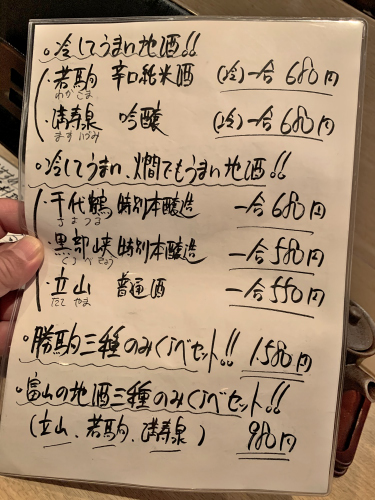 。冷してうまい地酒!!
・若駒 辛口純米酒 (冷)一合 680円
わかこま
・満寿泉 吟醸 (冷)一合 680円
ますいづみ
。冷してうまい、燗でもうまい地酒!!
・千代鶴 特別本醸造 一合 680円
ちよつる
・黒部峡 特別本醸造 一合 580円
くろべきょう
・立山 普通酒 一合 550円
たて やま
・勝駒三種のみくらべセット!! 1.580円
・富山の地酒三種のみくらべセット!!
(立山、若駒、満寿泉) 980円